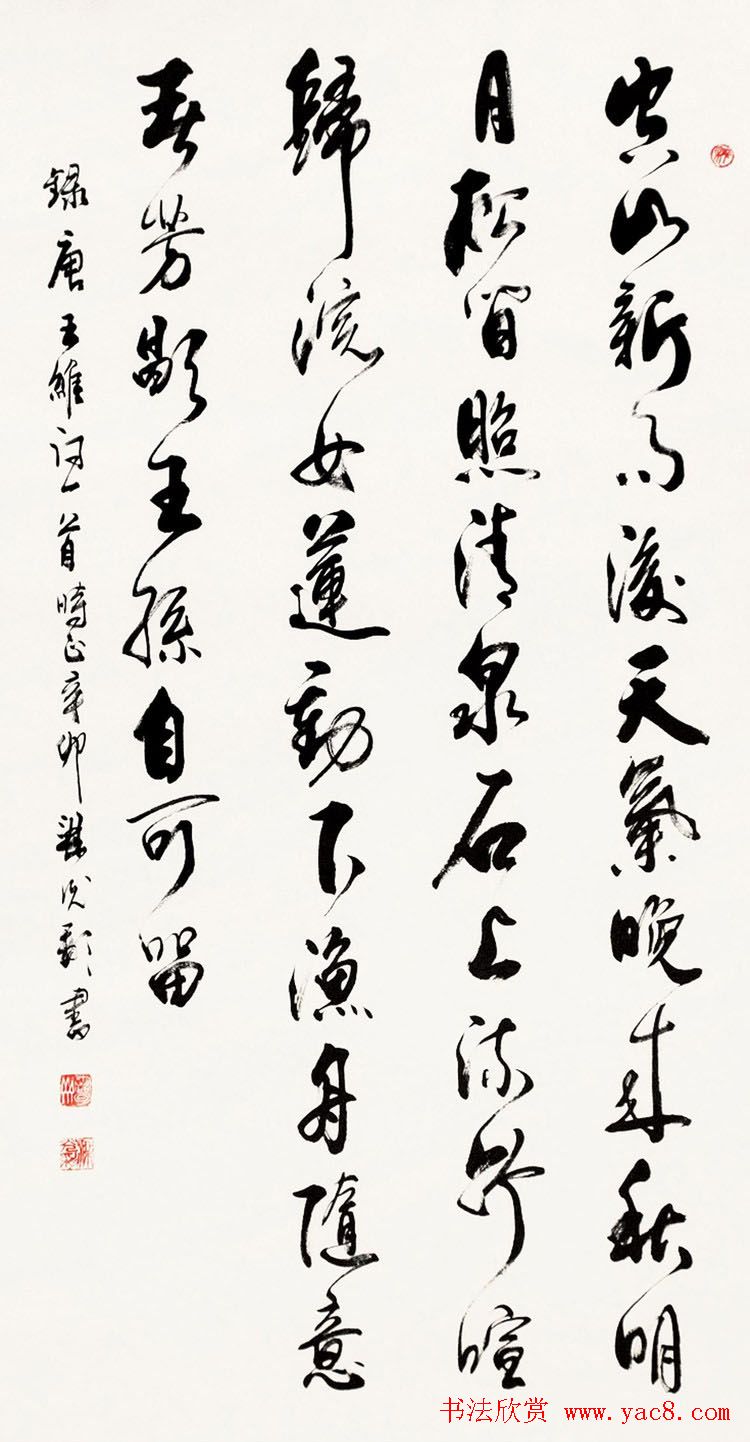 空山新雨後天氣晚来秋明
月松間照清泉石上流竹喧
歸浣女蓮動下漁舟隨意
春芳歇王孫自可留
録唐王維詩一首時辛卯書
书法欣赏 www.yac8.com